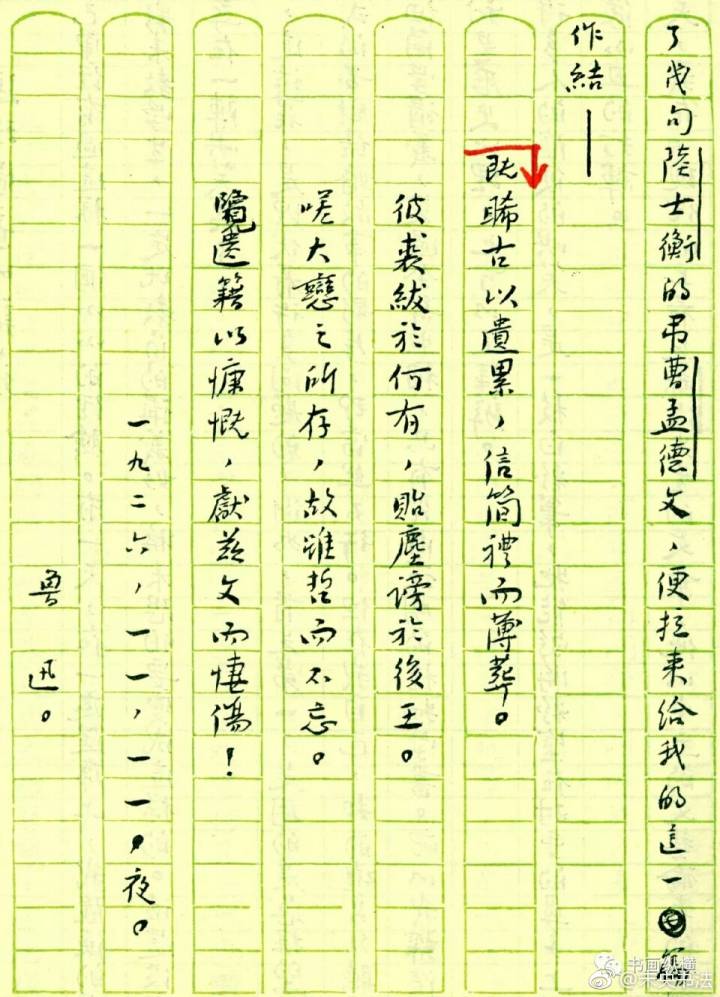 了幾句陸士衡的弔曹孟德文，便拉來給我的這一
作結——
既睎古以遺累，信简禮而薄葬。
彼裘紱於何有，貽塵謗於後王。
嗟大戀之所存，故雖哲而不忘。
覽遺籍以慷慨，獻茲文而悽傷！
一九二六，一一，一一，夜。
魯迅。
书画纵横